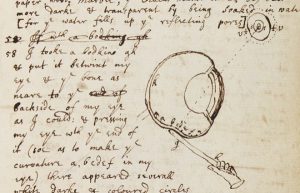 more darke & transparent by being soaked in wate
(for ye water fills up ye reflecting pores)
58 I tooke a bodkine gh &
put it betwixt my
eye & ye bone as
neare to ye
backside of my eye
as I could: & pressing
my eye wth ye end of
it (soe as to make ye
curvature a, bcdef in my
eye) there appeared severall
white darke & coloured circles